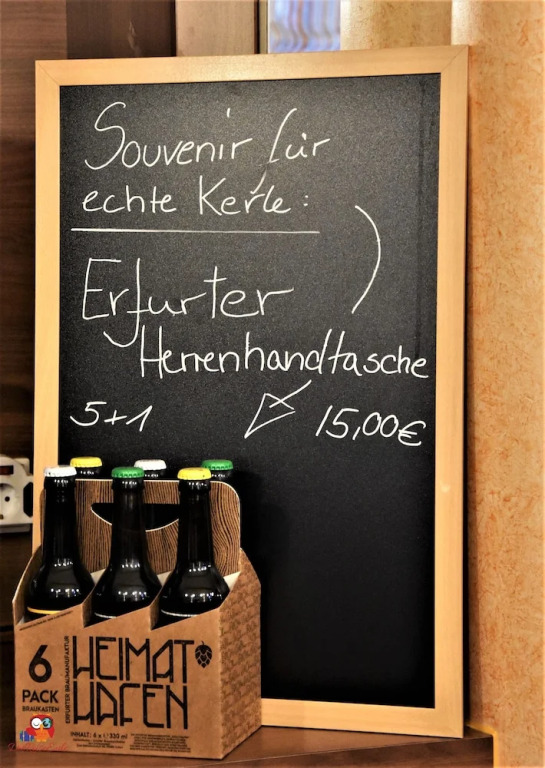 Souvenir für
echte Kerle:
Erfurter
Herrenhandtasche
5+1
15,00€
6
PACK
BRAUKASTEN
ERFURTER BRAUMANUFAKTUR
HEIMAT
HAFEN
INHALT: 6 x 330 ml